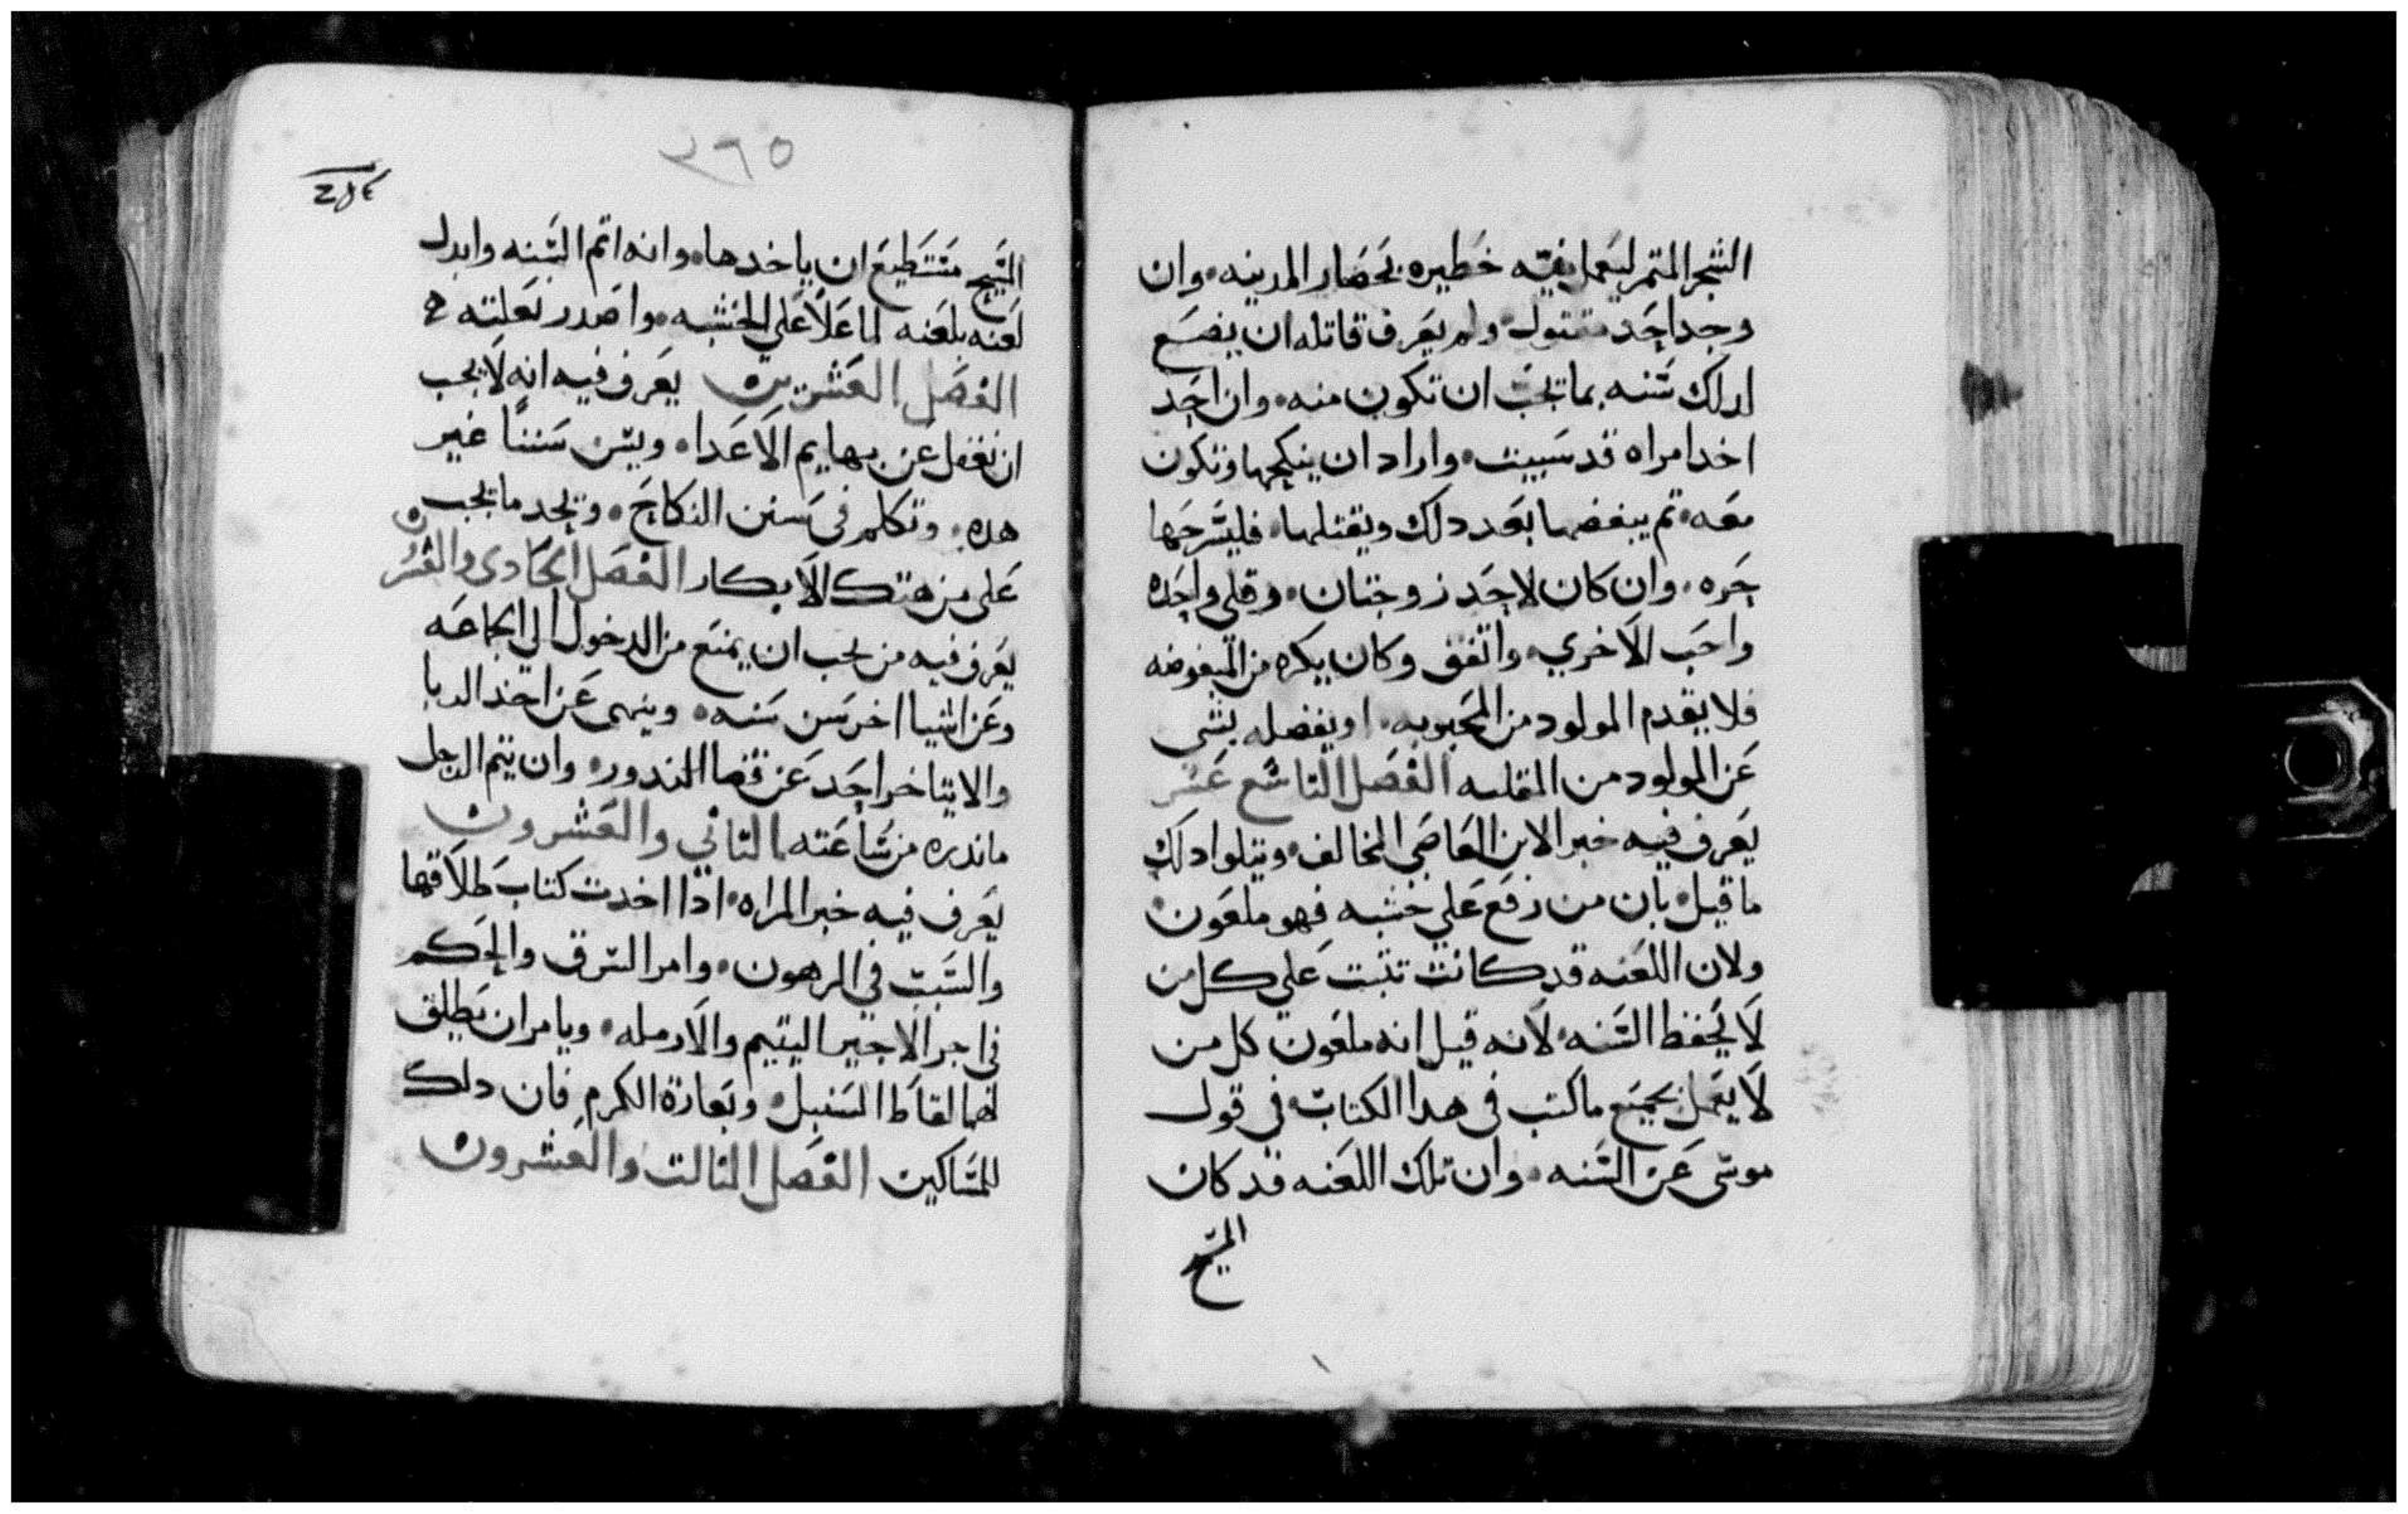 الشجر المتمر ليعمل فيه خطيره بحصار المدينه. وان
وجد احد مقتول. ولم يعرف قاتله ان يضع
ادلك سنه بما تجب ان تكون منه. وان احد
اخد امراه قد سبيت. واراد ان ينكحها وتكون
معه. تم يبغضها بعد دلك ويقتلها. فليسرحها
حره. وان كان لاحد زوجتان. وقلى واحده
واحب الاخري. واتفق وكان بكره من المبغوضه
فلا يقدم المولود من المحبوبه. او يفضله بشى
عن المولود من المقليه الفصل التاسع عشر
يعرف فيه خبر الابن العاصى المخالف. ويتلوا دلك
ما قيل. بان من رفع علي خشبه فهو ملعون.
ولان اللعنه قد كانت تثبت علي كل من
لا يحفظ السنه. لانه قيل انه ملعون كل من
لا يعمل بجميع ما كتب فى هدا الكتاب. في قول
موسى عن السنه. وان تلك اللعنه قد كان
المسيح
٣٦٥
المسيح مستطيع ان ياخدها. وانه اتم السنه وابدل
لعنه بلعنه لما علا علي الخشبه. واصدر بعلته
الفصل العشرين يعرف فيه انه لا يجب
ان نغفل عن بهايم الاعدا. ويسن سننا غير
هده. وتكلم فى سنن النكاح. ويحد ما يجب
على من هتك الابكار الفصل الحادى والعشر
يعرف فيه من يجب ان يمنع من الدخول الي الجماعه
وعن اشيا اخر سن سنه. وينهى عن اخد الربا
والا يتاخر احد عن قضا الندور. وان يتم الرجل
ماندره من ساعته الثاني والعشرون
يعرف فيه خبر المراه. ادا اخدت كتاب طلاقها
والسبب في الرهون. وامر السرق والحكم
فى اجر الاجير اليتيم والارمله. ويامر ان يطلق
لهما لقاط السنبل. وبعارة الكرم فان دلك
للمساكين الفصل الثالث والعشرون